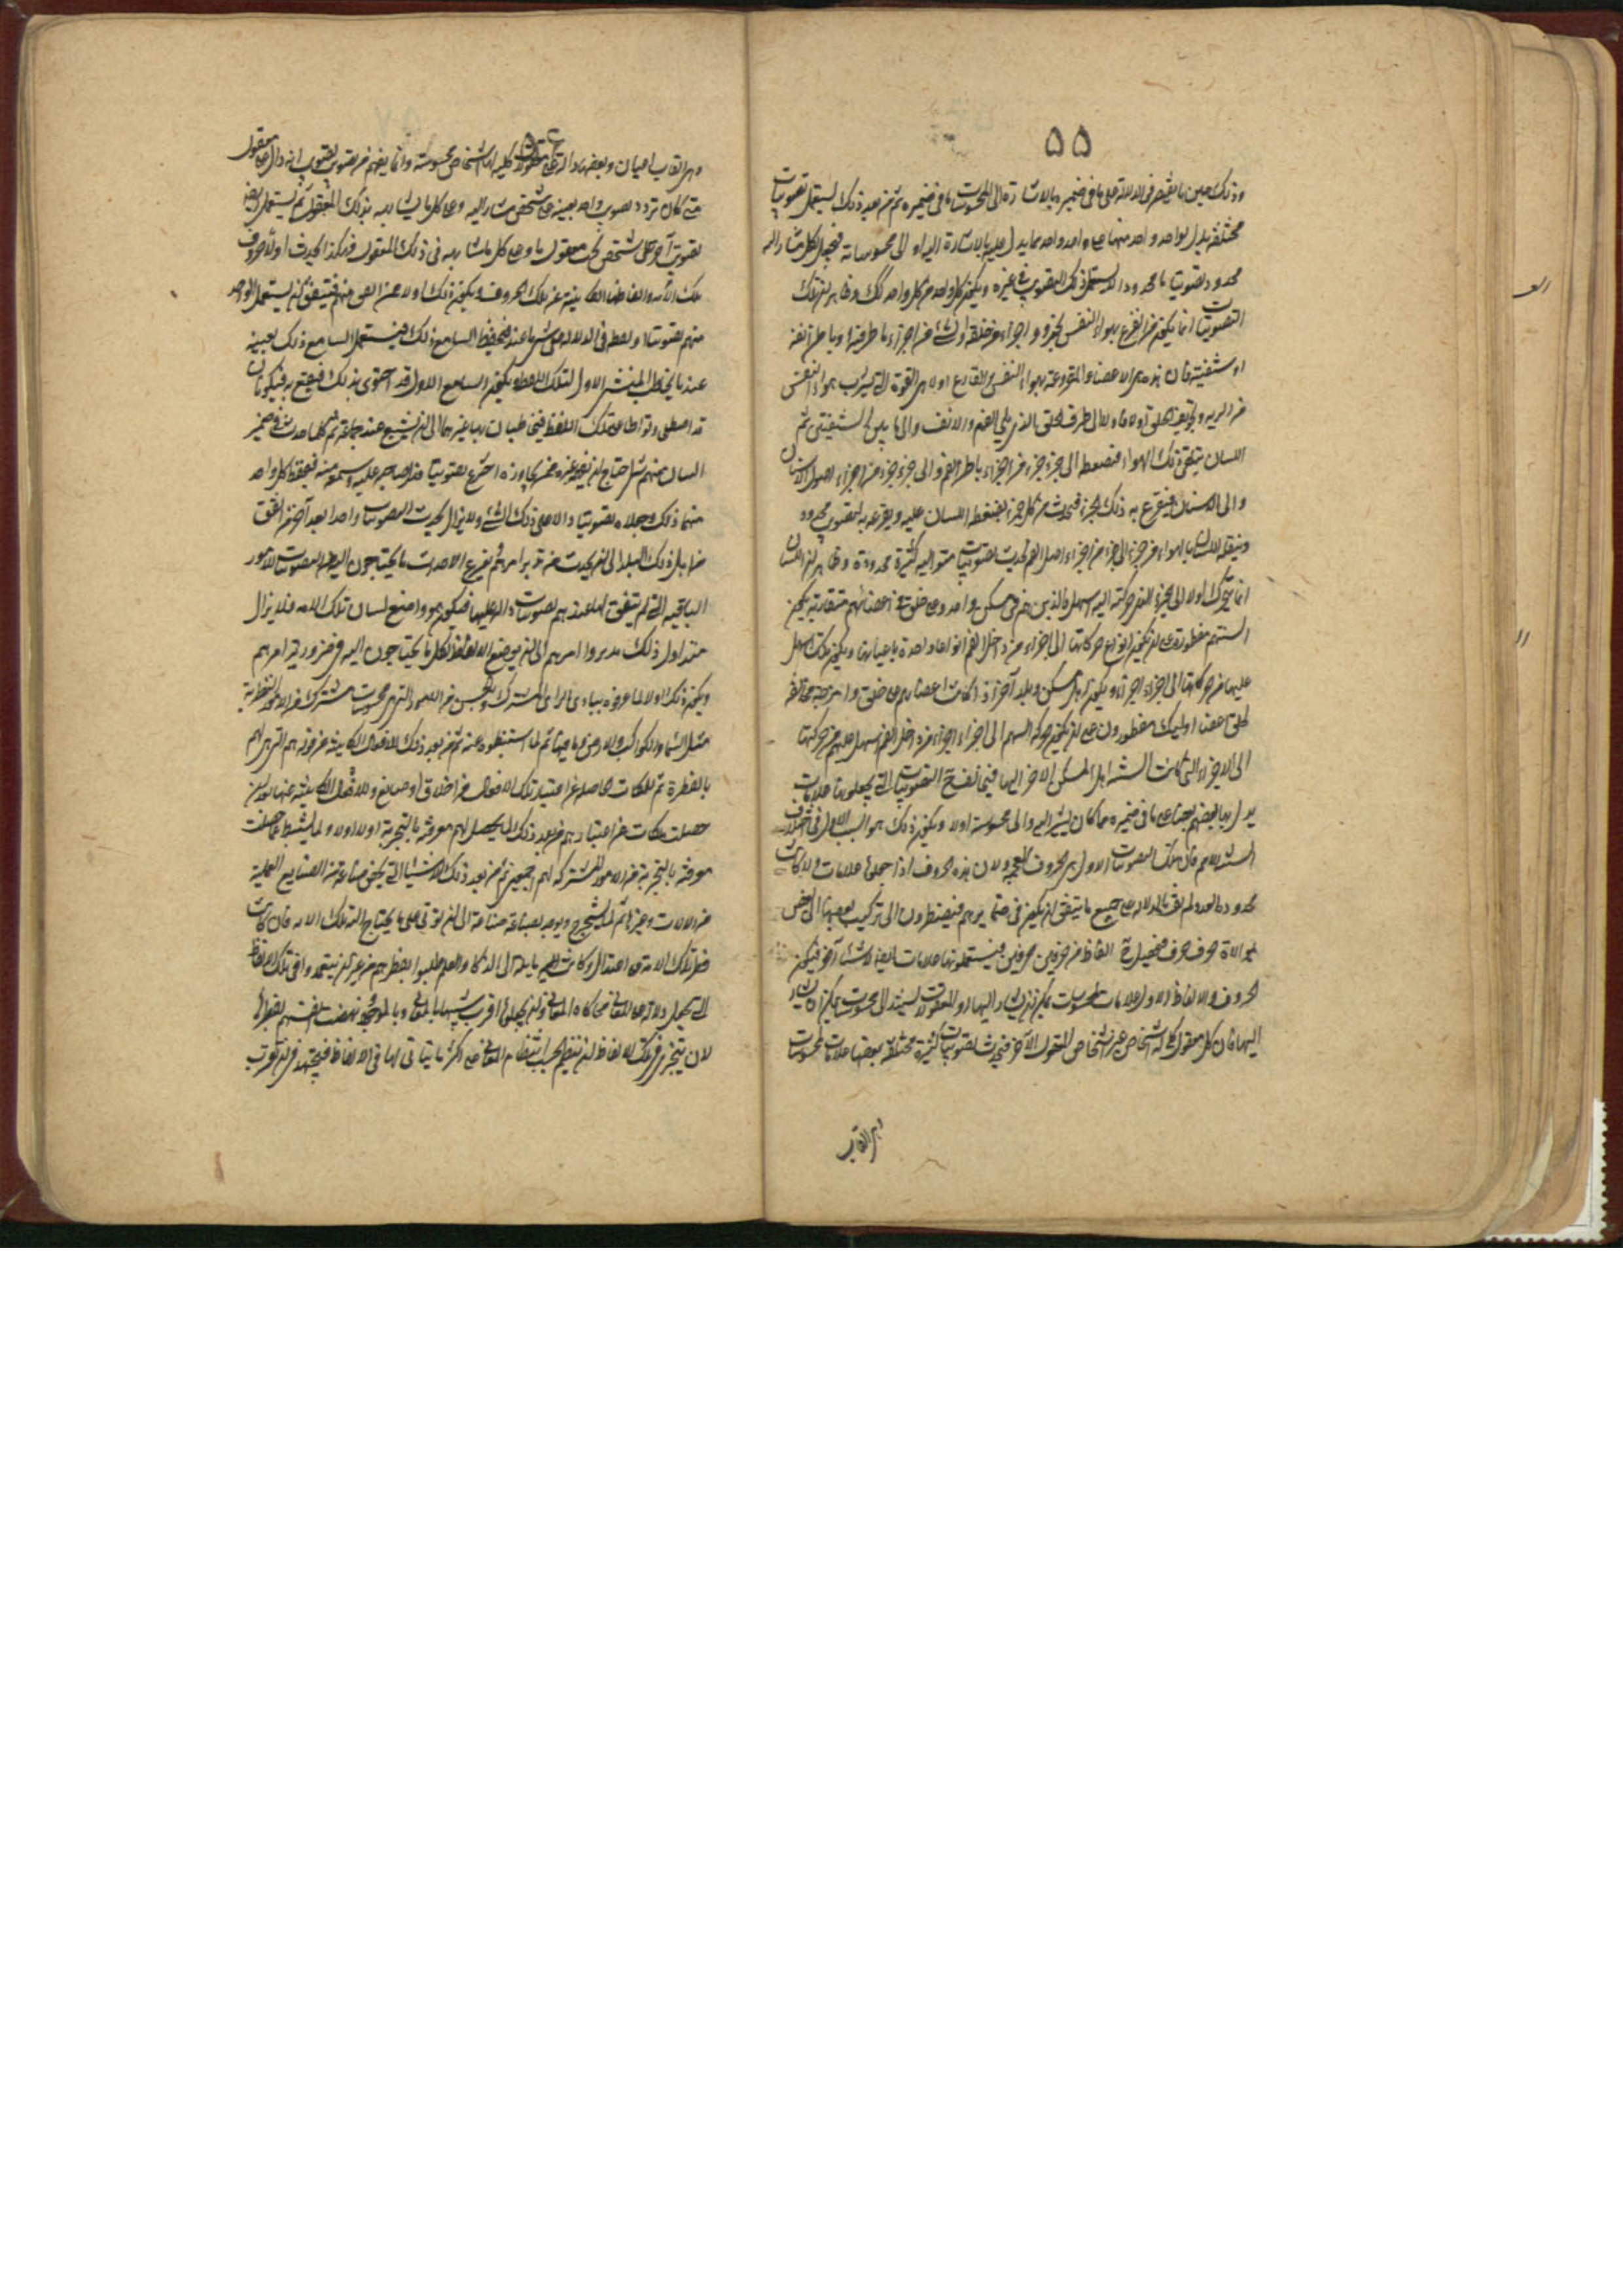 ۵۵
وذلك حين ما يقتصر فى الدلالة على ما فى ضميره بالاشارة الى المحسوسات ما فى ضميره ثم من بعد ذلك يستعمل تصويتات
مختلفة يدل بواحد واحد منها على واحد واحد مما يدل عليه بالاشارة اليه او الى محسوساته فيجعل لكل مشار اليه
محدود تصويتا ما محدودا لا يستعمل ذلك التصويت فى غيره ويكون كل واحد من كل واحد كذلك وظاهر ان تلك
التصويتات انما يكون من القرع بهواء النفس بجزء و اجزاء من حلقه او بشئ من اجزاء ما طرفية او باطن انفه
او شفتيه فان هذه هى الاعضاء المقروعة بهواء النفس والقارع اولا هى القوة التى تسرب هواء النفس
من الرية وتجويف الحلق اولا فاولا الى طرف الحلق الذى يلى الفم والانف والى ما بين الشفتين ثم
اللسان يتلقى ذلك الهواء فيضغطه الى جزء جزء من اجزاء باطن الفم والى جزء جزء من اجزاء اصول الاسنان
والى الاسنان فيقرع به ذلك الجزء فيحدث من كل جزء يضغط اللسان عليه ويقرعه به تصويت محدود
وينقله اللسان بالهواء من جزء الى جزء من اجزاء اصل الفم فيحدث تصويتات متوالية كثيرة محدودة وظاهر ان اللسان
انما يتحرك اولا الى الجزء الذى حركته اليه اسهل فالذين هم فى مسكن واحد وعلى خلق فى اعضائهم متقاربة يكون
السنتهم مفطورة على ان تكون انواع حركاتها الى اجزاء من داخل الفم انواعا واحدة باعيانها ويكون تلك اسهل
عليها من حركاتها الى اجزاء اخرى ويكون اهل مسكن وبلد آخر اذا كانت اعضاؤهم على خلق وامزجة مخالفة
لخلق اعضاء اوليك مفطورون على ان يكون حركة السنتهم الى اجزاء اجزاء من داخل الفم اسهل عليهم من حركتها
الى الاجزاء التى كانت السنة اهل المسكن الآخر اليها فيخالف ح التصويتات التى يجعلونها علامات
يدل بها بعضهم بعضا على ما فى ضميره مما كان يشير اليه والى محسوسه اولا ويكون ذلك هو السبب الاول فى اختلاف
السنة الامم فان تلك التصويتات الاول هى الحروف المعجمة ولان هذه الحروف اذا جعلوها علامات ولا كانت
محدودة العدد لم تف بالدلالة على جميع ما يتفق ان يكون فى ضمائرهم فيضطرون الى تركيب بعضها الى بعض
بموالاة حرف حرف فيحصل الفاظ من حرفين حرفين فيستعملونها علامات ايضا لاشياء آخر فيكون
الحروف والالفاظ الاول علامات لمحسوسات يمكن ان يشار اليها ولمعقولات يستند الى محسوسات يمكن ان يشار
اليها فان كل معقول كلى له اشخاص غير اشخاص المعقول الآخر فيحدث تصويتات كثيرة مختلفة بعضها علامات لمحسوسات
وهى القاب
۵۶
وهى القاب اعيان وبعضها دالة على معقولات كلية لها اشخاص محسوسة وانما يفهم من تصويت تصويت انه دال على معقول
متى كان تردد تصويت واحد بعينه على شخص مشار اليه وعلى كل ما يشابهه بذلك المعقول ثم يستعمل ايضا
تصويت آخر على شخص تحت معقول ما وعلى كل ما يشابهه فى ذلك المعقول فهكذا يحدث اولا حروف
تلك الامة والفاظها الكاينة عن تلك الحروف ويكون ذلك اولا عمن اتفق منهم فيتفق ان يستعمل الواحد
منهم تصويتا او لفظة فى الدلالة على شئ ما عند غيره فيحفظ السامع ذلك فيستعمل السامع ذلك بعينه
عند ما يخاطب المنشئ الاول لتلك اللفظة ويكون السامع الاول قد احتذى بذلك فيقع به فيكونان
قد اصطلحا وتواطآ على تلك اللفظة فيتخاطبان بها غيرهما الى ان يشيع عند جماعة ثم كلما حدث فى ضمير
انسان منهم شئ احتاج ان يفهمه غيره ممن يجاوره اخترع تصويتا فدل صاحبه عليه وسمعه منه فيحفظ كل واحد
منهما ذلك وجعلاه تصويتا دالا على ذلك الشئ ولا يزال يحدث التصويتات واحدا بعد آخر ممن اتفق
من اهل ذلك البلد الى ان يحدث من يدبر امرهم ويضع الاحداث ما يحتاجون اليه من التصويتات للامور
الباقية التى لم يتفق لها عندهم تصويتات دالة عليها فيكون هو واضع لسان تلك الامة فلا يزال
منذ اول ذلك يدبروا امرهم الى ان يوضع الالفاظ لكل ما يحتاجون اليه فى ضرورية امرهم
ويكون ذلك اولا لما عرفوه ببادى الراى المشترك وبما يحس من الامور التى هى محسوسات مشتركة من الامور النظرية
مثل السماء والكواكب والارض وما فيها ثم لما استنبطوه عنه ثم من بعد ذلك للافعال الكاينة عن قواهم التى هى لهم
بالفطرة ثم للملكات الحاصلة عن اعتياد تلك الافعال من اخلاق او صنايع وللافعال الكاينة عنها بعد ان
حصلت ملكات عن اعتيادهم ثم من بعد ذلك لما يحصل لهم معرفته بالتجربة اولا اولا ولما يستنبط عما حصلت
معرفته بالتجربة من الامور المشتركة لهم اجمعين ثم من بعد ذلك للاشياء التى يخص صناعة صناعة من الصنايع العملية
من الالات وغيرها ثم لما يستخرج ويوجد بصناعة صناعة الى ان يؤتى على ما يحتاج اليه تلك الامة فان كانت
فطر تلك الامة على اعتدال وكانت امة مايلة الى الذكاء والعلم طلبوا بفطرهم من غير ان يتعمدوا فى تلك الالفاظ
التى تجعل دالة على المعانى محاكاة المعانى وان يجعلوها اقرب شبها بالمعانى وبالموجود ونهضت انفسهم بفطرها
لان يتحرى فى تلك الالفاظ ان ينتظم بحسب انتظام المعانى على اكثر ما يتأتى لها فى الالفاظ فيجتهد فى ان تعرب